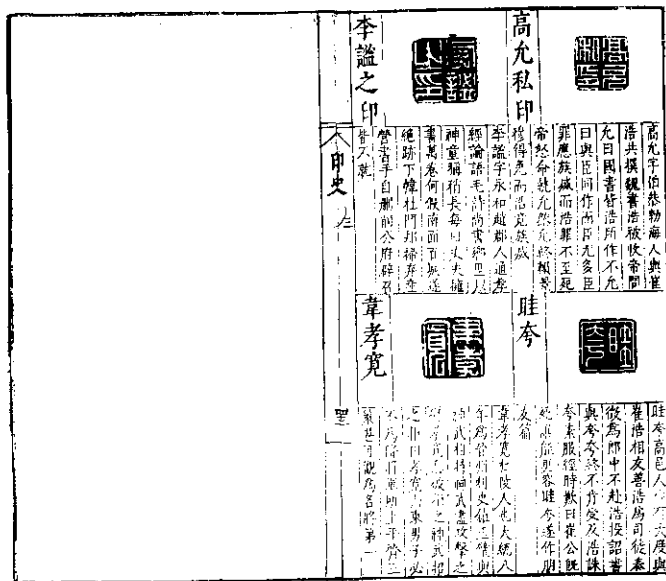 高允私印
高允字伯恭勃海人與崔
浩共撰魏書浩被收帝問
允曰國書皆浩所作不允
曰與臣同作而臣尤多臣
罪應族滅而浩罪不至死
帝怒命誅允然允終賴景
穆得免而浩竟族滅
李謐之印
李謐字永和趙郡人通孝
經論語毛詩尚書鄉里以
神童稱稍長每曰丈夫擁
書萬卷何假南面百城遂
絕跡下幃杜門却掃棄產
營書手自刪削公府辟召
皆不就
眭夸
眭夸高邑人少有大度與
崔浩相友善浩為司徒奏
徵為郎中不赴浩投詔書
與夸夸終不肯受及浩誅
夸素服經時歎曰崔公既
死誰能更容眭夸遂作朋
友篇
韋孝寬
韋孝寬杜陵人也大統八
年為晉州刺史
神武自將攻擊之
孝寬神武
曰孝寬關東男子必
不為將軍
名將第一
印史